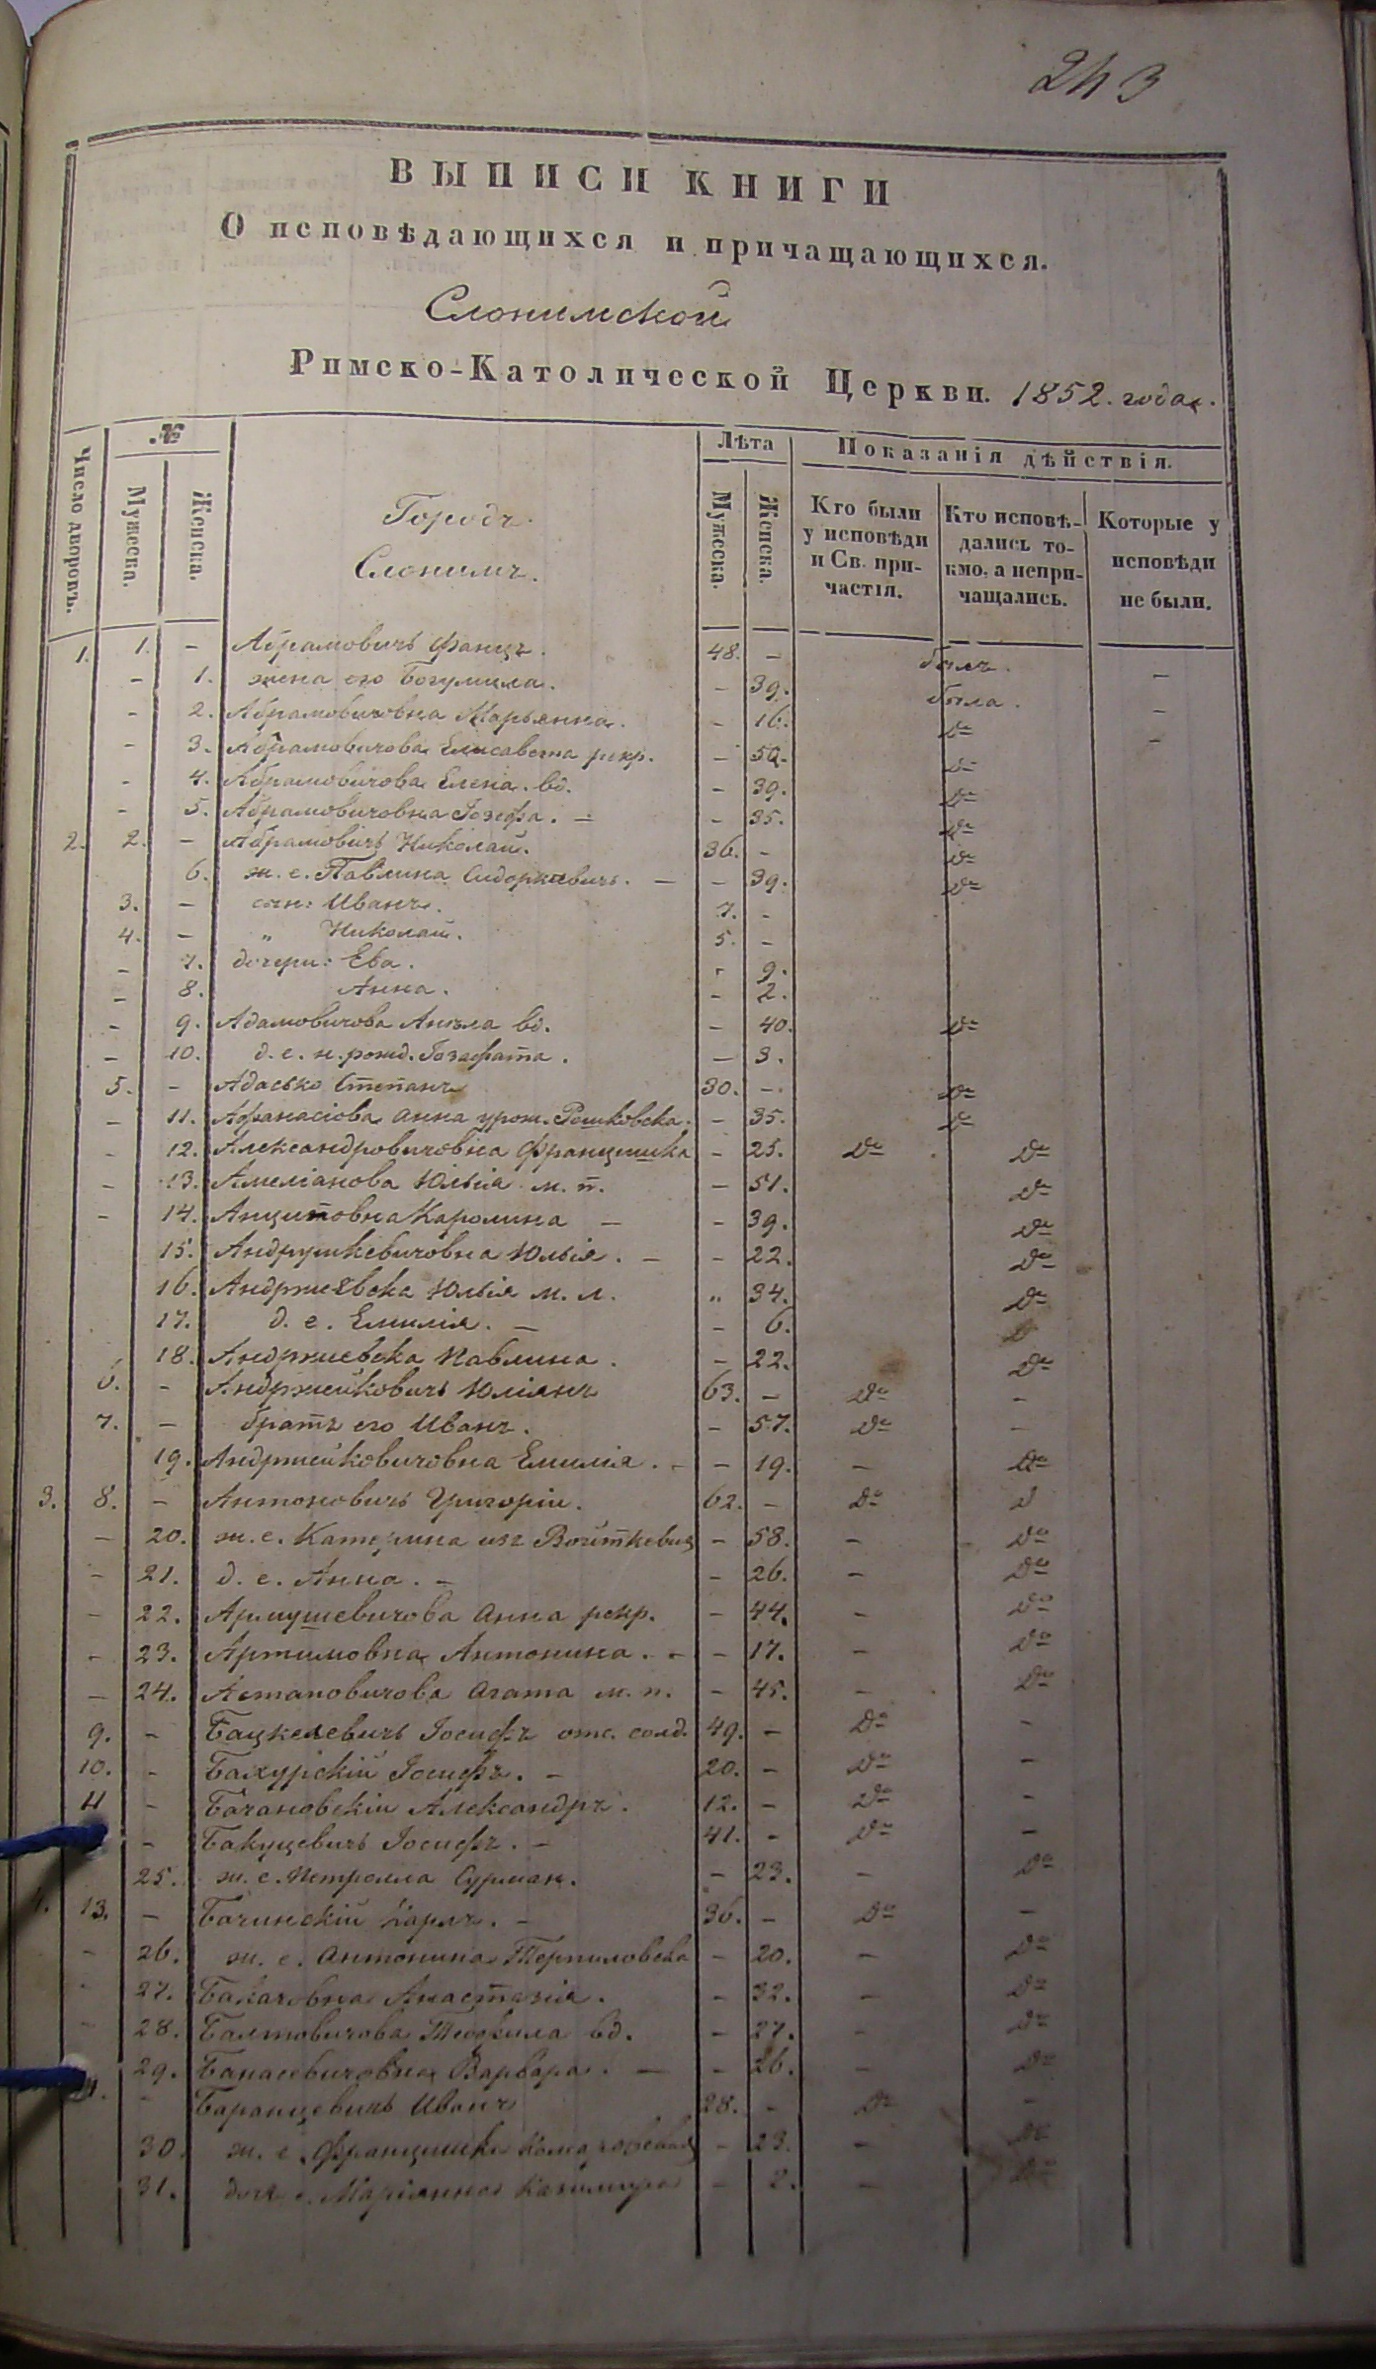 243
ВЫПИСИ КНИГИ
О исповѣдающихся и причащающихся.
Слонимской
Римско-Католической Церкви. 1852. года.
Число дворовъ. №. Мужеска. Женска. Городъ Слонимъ. Лѣта Мужеска. Женска. Показанія дѣйствія. Кто были у исповѣди и Св. причастія. Кто исповѣдались токмо, а непричащались. Которые у исповѣди не были.
1. 1. - Абрамовичъ Францъ. 48. - былъ. -
- 1. жена его Богумила. - 39. была. -
- 2. Абрамовичовна Марьянна. - 16. до -
- 3. Абрамовичова Елисавета рекр. - 50. до
- 4. Абрамовичова Елена. вд. - 39. до
- 5. Абрамовичовна Іозефа. - - 35. до
2. 2. - Абрамовичъ Николай. 36. - до
6. ж. е. Павлина Сидоркевичъ. - - 39. до
3. - сын: Иванъ. 7. -
4. - „ Николай. 5. -
- 7. дочери: Ева. - 9.
- 8. Анна. - 2.
- 9. Адамовичова Анѣла вд. - 40. до
- 10. д. е. н. рожд. Іозефата. - 3.
5. - Адасько Степанъ 30. - до
- 11. Афанасіова Анна урож. Рошковска. - 35. до
- 12. Александровичовна Францишка - 25. до до
- 13. Амеліанова Юлія м. п. - 51. до
- 14. Анцитовна Каролина - - 39. до
15. Андрушкевичовна Юлія. - - 22. до
16. Андржеевска Юлія м. л. „ 34. до
17. д. е. Емилія. - - 6.
18. Андржиевска Павлина. - 22. до
6. - Андржейковичъ Юліянъ 63. - до -
7. - братъ его Иванъ. - 57. до -
19. Андржейковичовна Емилія. - - 19. - до
3. 8. - Антоновичъ Григорій. 62. - до
- 20. ж. е. Катерина изъ Войткевич - 58. - до
- 21. д. е. Анна. - - 26. - до
- 22. Армушевичова Анна рекр. - 44. - до
- 23. Артимовна Антонина. - - 17. - до
- 24. Астановичова Агата м. п. - 45. - до
9. - Бацкелевичъ Іосифъ отс. солд. 49. - до -
10. - Бахурскій Іосифъ. - 20. - до -
11 - Бачановскій Александръ. 12. - до -
- Бакуцевичъ Іосифъ. - 41. - до -
25. ж. е. Петроля Сурмак. - 23. - до
13. - Бачинскій Карлъ. - 36. - до -
- 26. ж. е. Антонина Терпиловска - 20. - до
27. Балачовна Анастазія. - 32. - до
28. Балтовичова Теофила вд. - 27. - до
29. Банасевичовна Варвара. - - 26. - до
- Баранцевичъ Иванъ 28. - до -
30. ж. е. Францишка - 23. - до
31. дочь е. Маріанна - 2. - до